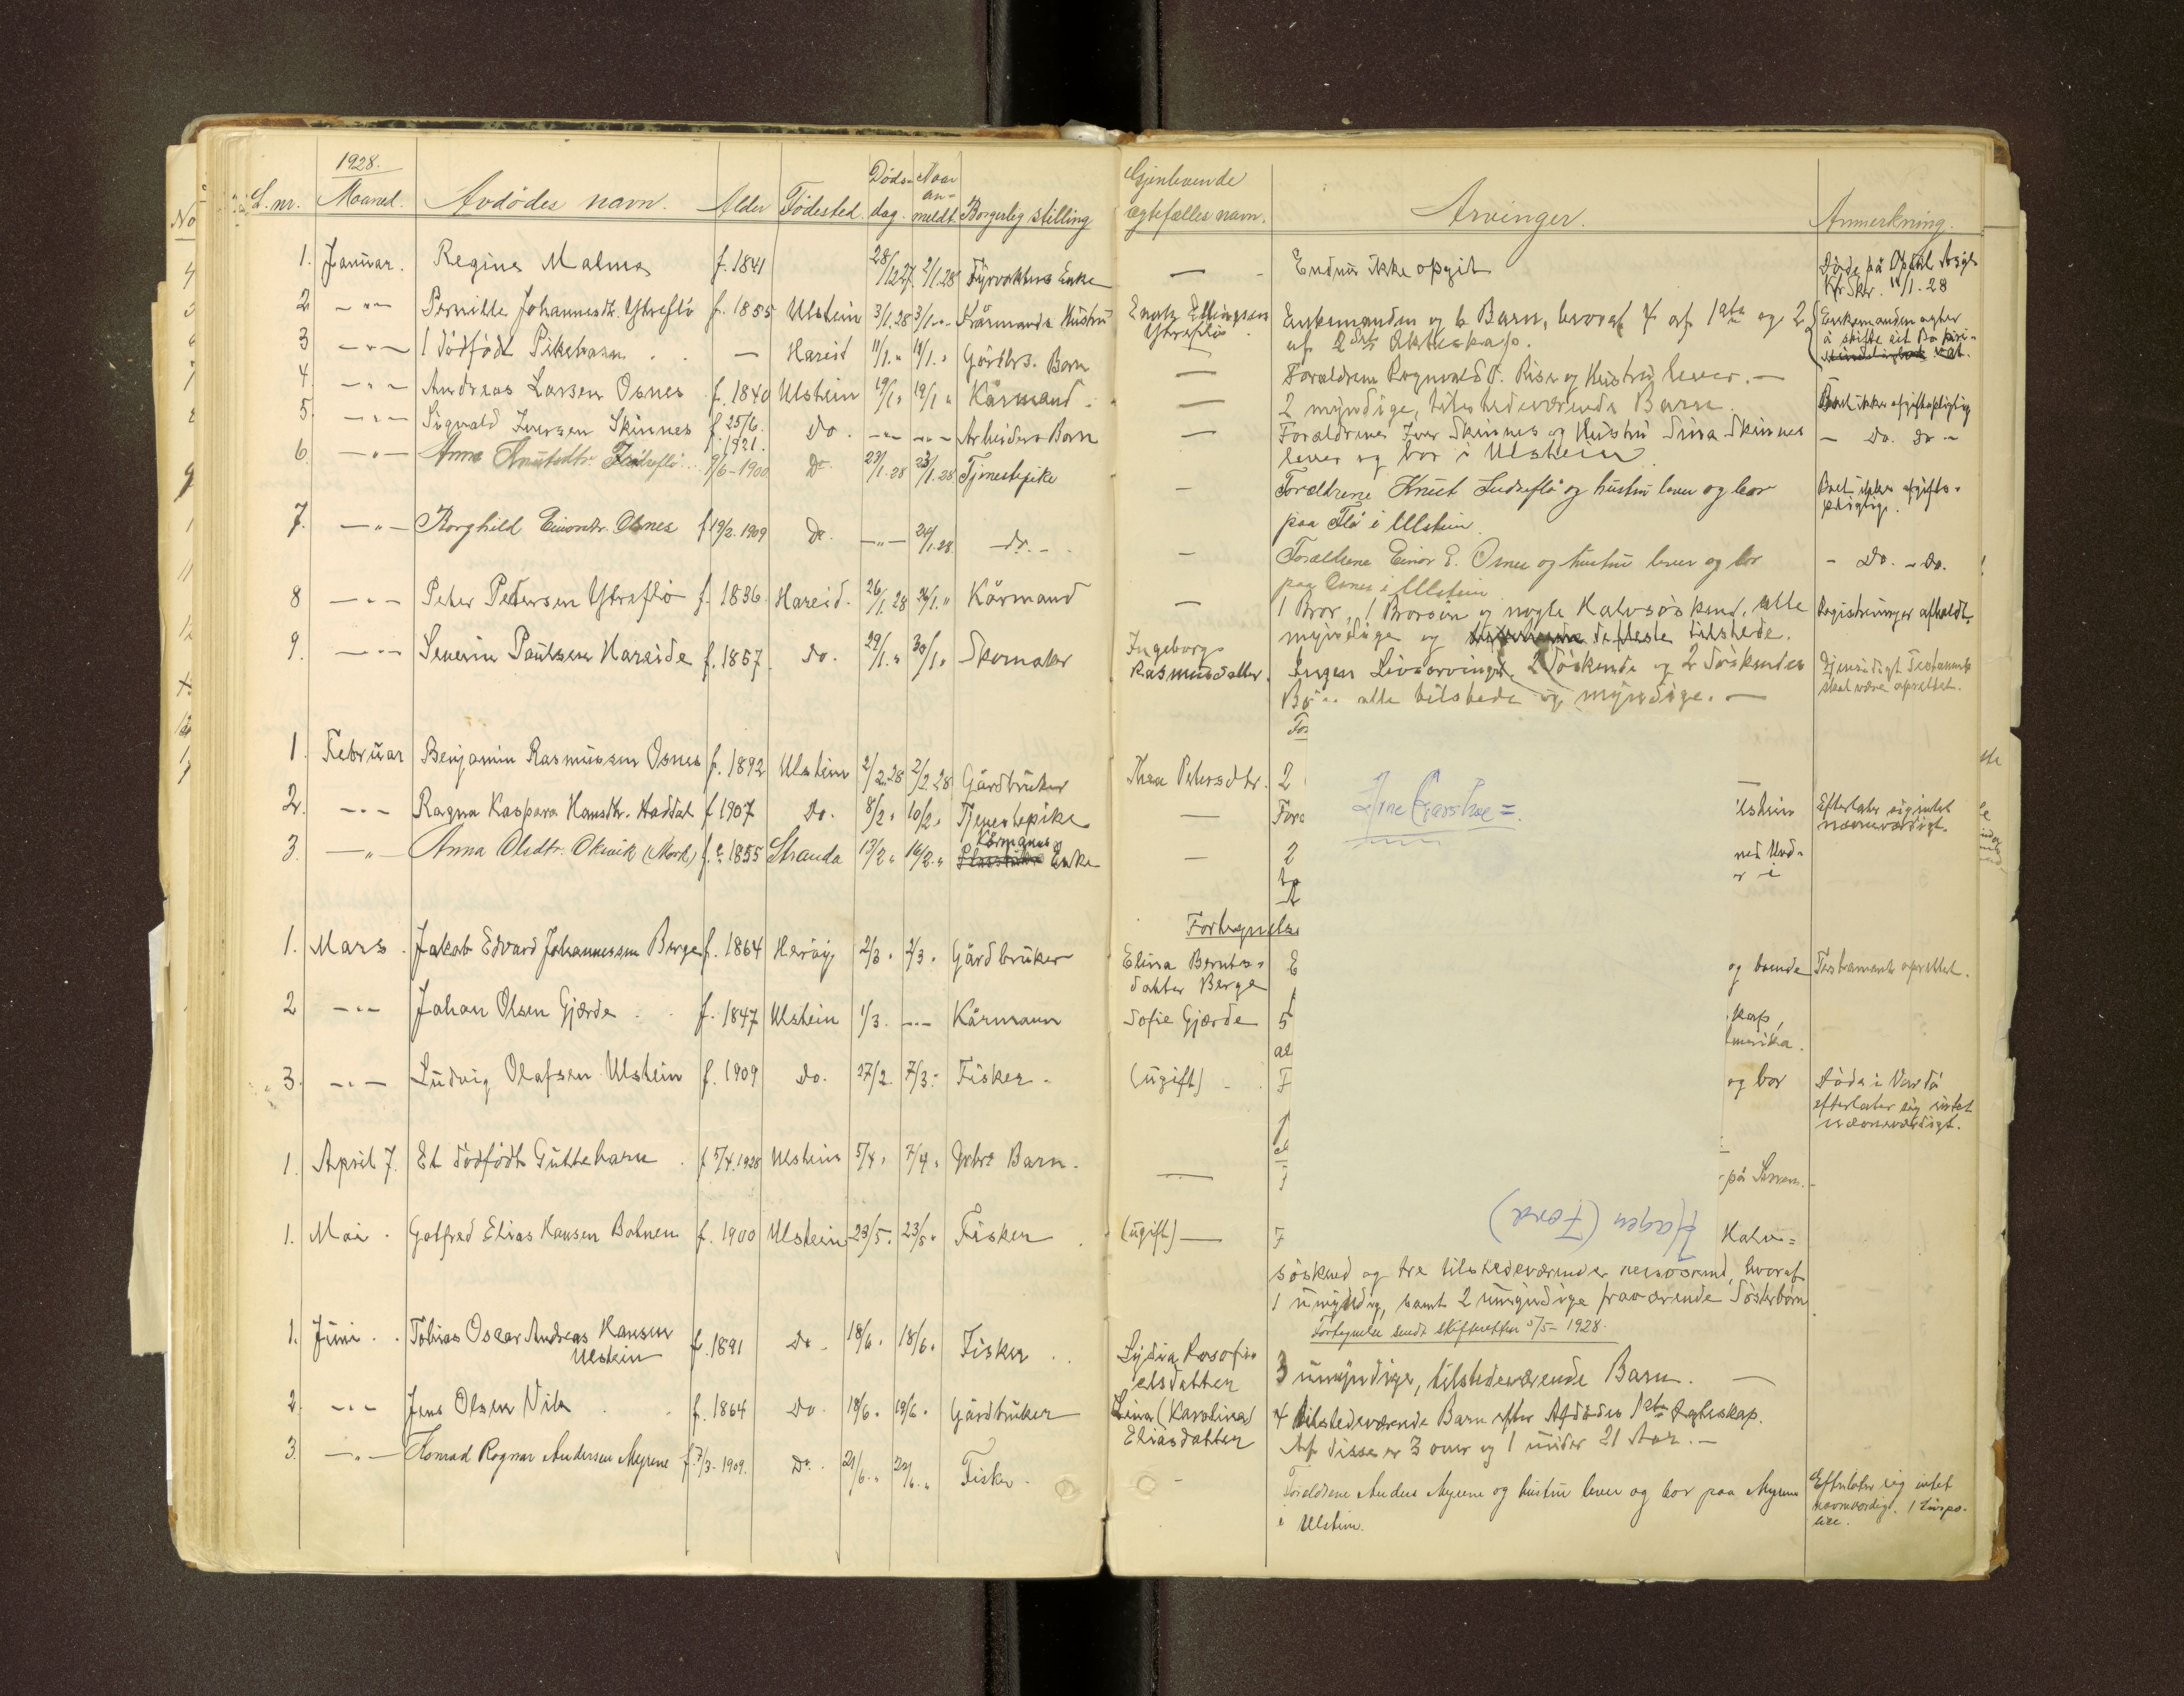 1928.
L. nr. Maaned. Avdödes navn. Alder Födested. Döds-dag. Naar an-meldt. Borgerlig stilling
1. Januar. Regine Malme f. 1841 28/12 27 2/1.28 Fyrvokters Enke
2 -"- Pernille Johannesdtr. Ytreflö f. 1855 Ulstein 3/1.28 3/1 -"- Kårmands Hustru
3 -"- 1 dödfödt Pikebarn — Hareid 11/1. " 14/1. " Gårdbrs. Barn
4. -"- Andreas Larsen Osnes f. 1840 Ulstein 19/1 " 19/1 " Kårmand
5. -"- Sigvald Iversen Skinnes f. 25/6. 1921. Do. -"- -"- Arbeiders Barn
6. -"- Anna Knutsdtr. 9/6-1900 Do 23/1.28 23/1.28 Tjenestepike
7. -"- Borghild Einarsdtr. Osnes f 19/2.1909 Do. -"- 24/1.28 -Do.-
8 -"- Peter Petersen Ytreflö f. 1836. Hareid. 26/1.28 26/1. " Kårmand
9. -"- Severin Paulsen Hareide f. 1857. Do. 29/1. " 30/1. " Skomaker
1. Februar Benjamin Rasmussen Osnes f. 1892 Ulstein 2/2.28 2/2.28 Gårdbruker
2. -"- Ragna Kaspara Hansdtr. Haddal f 1907 Do. 8/2 " 10/2 " Tjenestepike
3. -"- Anna Olsdtr. Okvik (Mork) f. 1855 Stranda 13/2 " 16/2. " Kårmanns Enke
1. Mars. Jakob Edvard Johannessen Berge f. 1864 Heröy 2/3 " 2/3 " Gårdbruker
2 -"- Johan Olsen Gjerde f. 1847 Ulstein 1/3. -"- Kårmann
3. -"- Ludvig Olafsen Ulstein f. 1909 Do. 27/2. 7/3. " Fisker.
1. April 7. Et dödfödt Guttebarn f. 5/4.1928 Ulstein 5/4 " 7/4 " Gbrs Barn.
1. Mai. Gotfred Elias Hansen Botnen f. 1900 Ulstein 23/5. " 23/5 " Fisker
1. Juni. Tobias Oscar Andreas Hansen
Ulstein f. 1891 Do. 18/6. 18/6. Fisker
2. -"- Jens Olsen Vik f. 1864 Do 18/6. 19/6. Gårdbruker
3. -"- Konrad Ragnar Andersen Myrene f. 7/3-1909. Do. 21/6. " 22/6. " Fisker.
Gjenlevende
ægtefælles navn. Arvinger. Anmerkning.
— Endnu ikke opgit
14/1-28
Enok Ellingsen
Ytreflö
Enkemanden og 6 Barn, hvoraf 4 af 1ste og 2
af 2det Ækteskap.
Enkemanden agter
å skifte sit Bo
— Forældrene Ragnvald O. Riise og Hustru lever. —
— 2 myndige, tilstedeværende Barn. Boet ikke afgiftspligtig
— Forældrene Iver Skinnes og Hustru Sina Skinnes — do. do —
lever og bor i Ulstein.
— Forældrene Knut Indreflö og hustru lever og bor Boet ikke afgifts-
paa Flö i Ulstein. pligtig.
— Forældrene Einar E. Osnes og hustru lever og bor — Do. — Do.
paa Osnes i Ulstein
— 1 Bror, 1 Brorsön og nogle Halvsöskend, alle Registreringer afholdt.
myndige og de fleste tilstede.
Ingeborg
Rasmusdatter.
Ingen Livsarvinger, 2 Söskende og 2 Söskendes Gjensidigt Testamente
alle tilstede og myndige. — skal være oprettet.
Thea Petersdtr. 2
— Ulstein Efterlater sig intet
nævneværdigt.
— 2
Fortegnelse
Elina Bernts-
datter Berge
E
og boende Testamente oprettet.
Sofie Gjerde 5
kap,
Amerika.
(ugift) F
og bor Döde i Vardö
efterlater sig intet
nævneværdigt.
—
på
(ugift) — F
Halv=
Hagen (Ford)
söskend og tre tilstedeværende hvoraf
1 umyndig, samt 2 umyndige fraværende Sösterbörn
Fortegnelse sendt skifteretten 5/5-1928.
Lydia
3 umyndige, tilstedeværende Barn. —
Lina (Karolina)
Eliasdatter
4 tilstedeværende Barn efter Afdödes 1ste Ægteskap.
Af disse er 3 over og 1 under 21 Aar. —
- Forældrene Anders Myrene og hustru lever og bor paa Myrene Efterlater sig intet
i Ulstein. nævneværdigt.